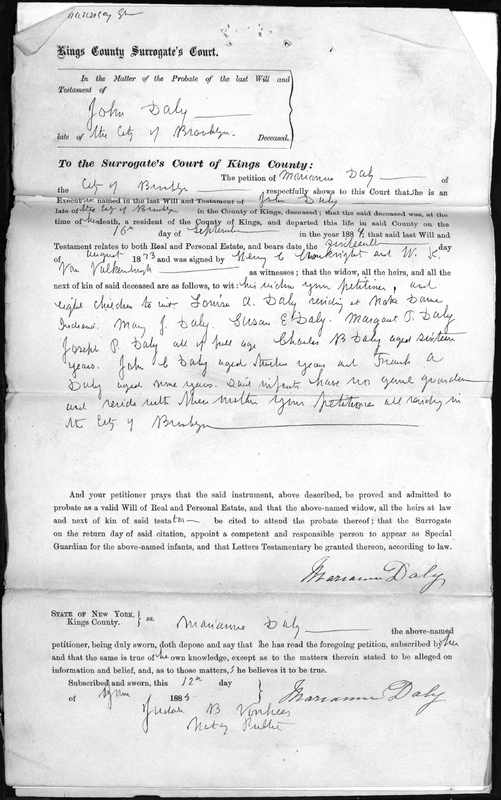 Kings County Surrogate's Court.
In the Matter of the Probate of the last Will and
Testament of
John Daly
late of the City of Brooklyn. Deceased.
To the Surrogate's Court of Kings County:
The petition of Marianne Daly of
the City of Brooklyn respectfully shows to this Court that She is an
Execut named in the last Will and Testament of John Daly
late of the City of Brooklyn in the County of Kings, deceased; that the said deceased was, at the
time of his death, a resident of the County of Kings, and departed this life in said County on the
16th day of September in the year 1884, that said last Will and
Testament relates to both Real and Personal Estate, and bears date the sixteenth day
of August 1873 and was signed by Henry C and W. K.
Van Valkenburgh as witnesses; that the widow, all the heirs, and all the
next of kin of said deceased are as follows, to wit: his widow your petitioner, and
eight children to wit Louisa A. Daly residing at Notre Dame
Indiana. Mary J. Daly. Susan E. Daly. Margaret T. Daly
Joseph P. Daly all of full age Charles B Daly aged sixteen
years. John C Daly aged years and Frank A
Daly aged nine years. Said infants have no genl guardian
and reside with their mother your petitioner all residing in
the City of Brooklyn
And your petitioner prays that the said instrument, above described, be proved and admitted to
probate as a valid Will of Real and Personal Estate, and that the above-named widow, all the heirs at law
and next of kin of said testator be cited to attend the probate thereof; that the Surrogate
on the return day of said citation, appoint a competent and responsible person to appear as Special
Guardian for the above-named infants, and that Letters Testamentary be granted thereon, according to law.
Marianne Daly
STATE OF NEW YORK, } ss.
Kings County.
Marianne Daly the above-named
petitioner, being duly sworn, doth depose and say that She has read the foregoing petition, subscribed by her
and that the same is true of her own knowledge, except as to the matters therein stated to be alleged on
information and belief, and, as to those matters, She believes it to be true.
Subscribed and sworn, this 12th day
of 1885
Marianne Daly
Judah B Voorhees
Notary Public